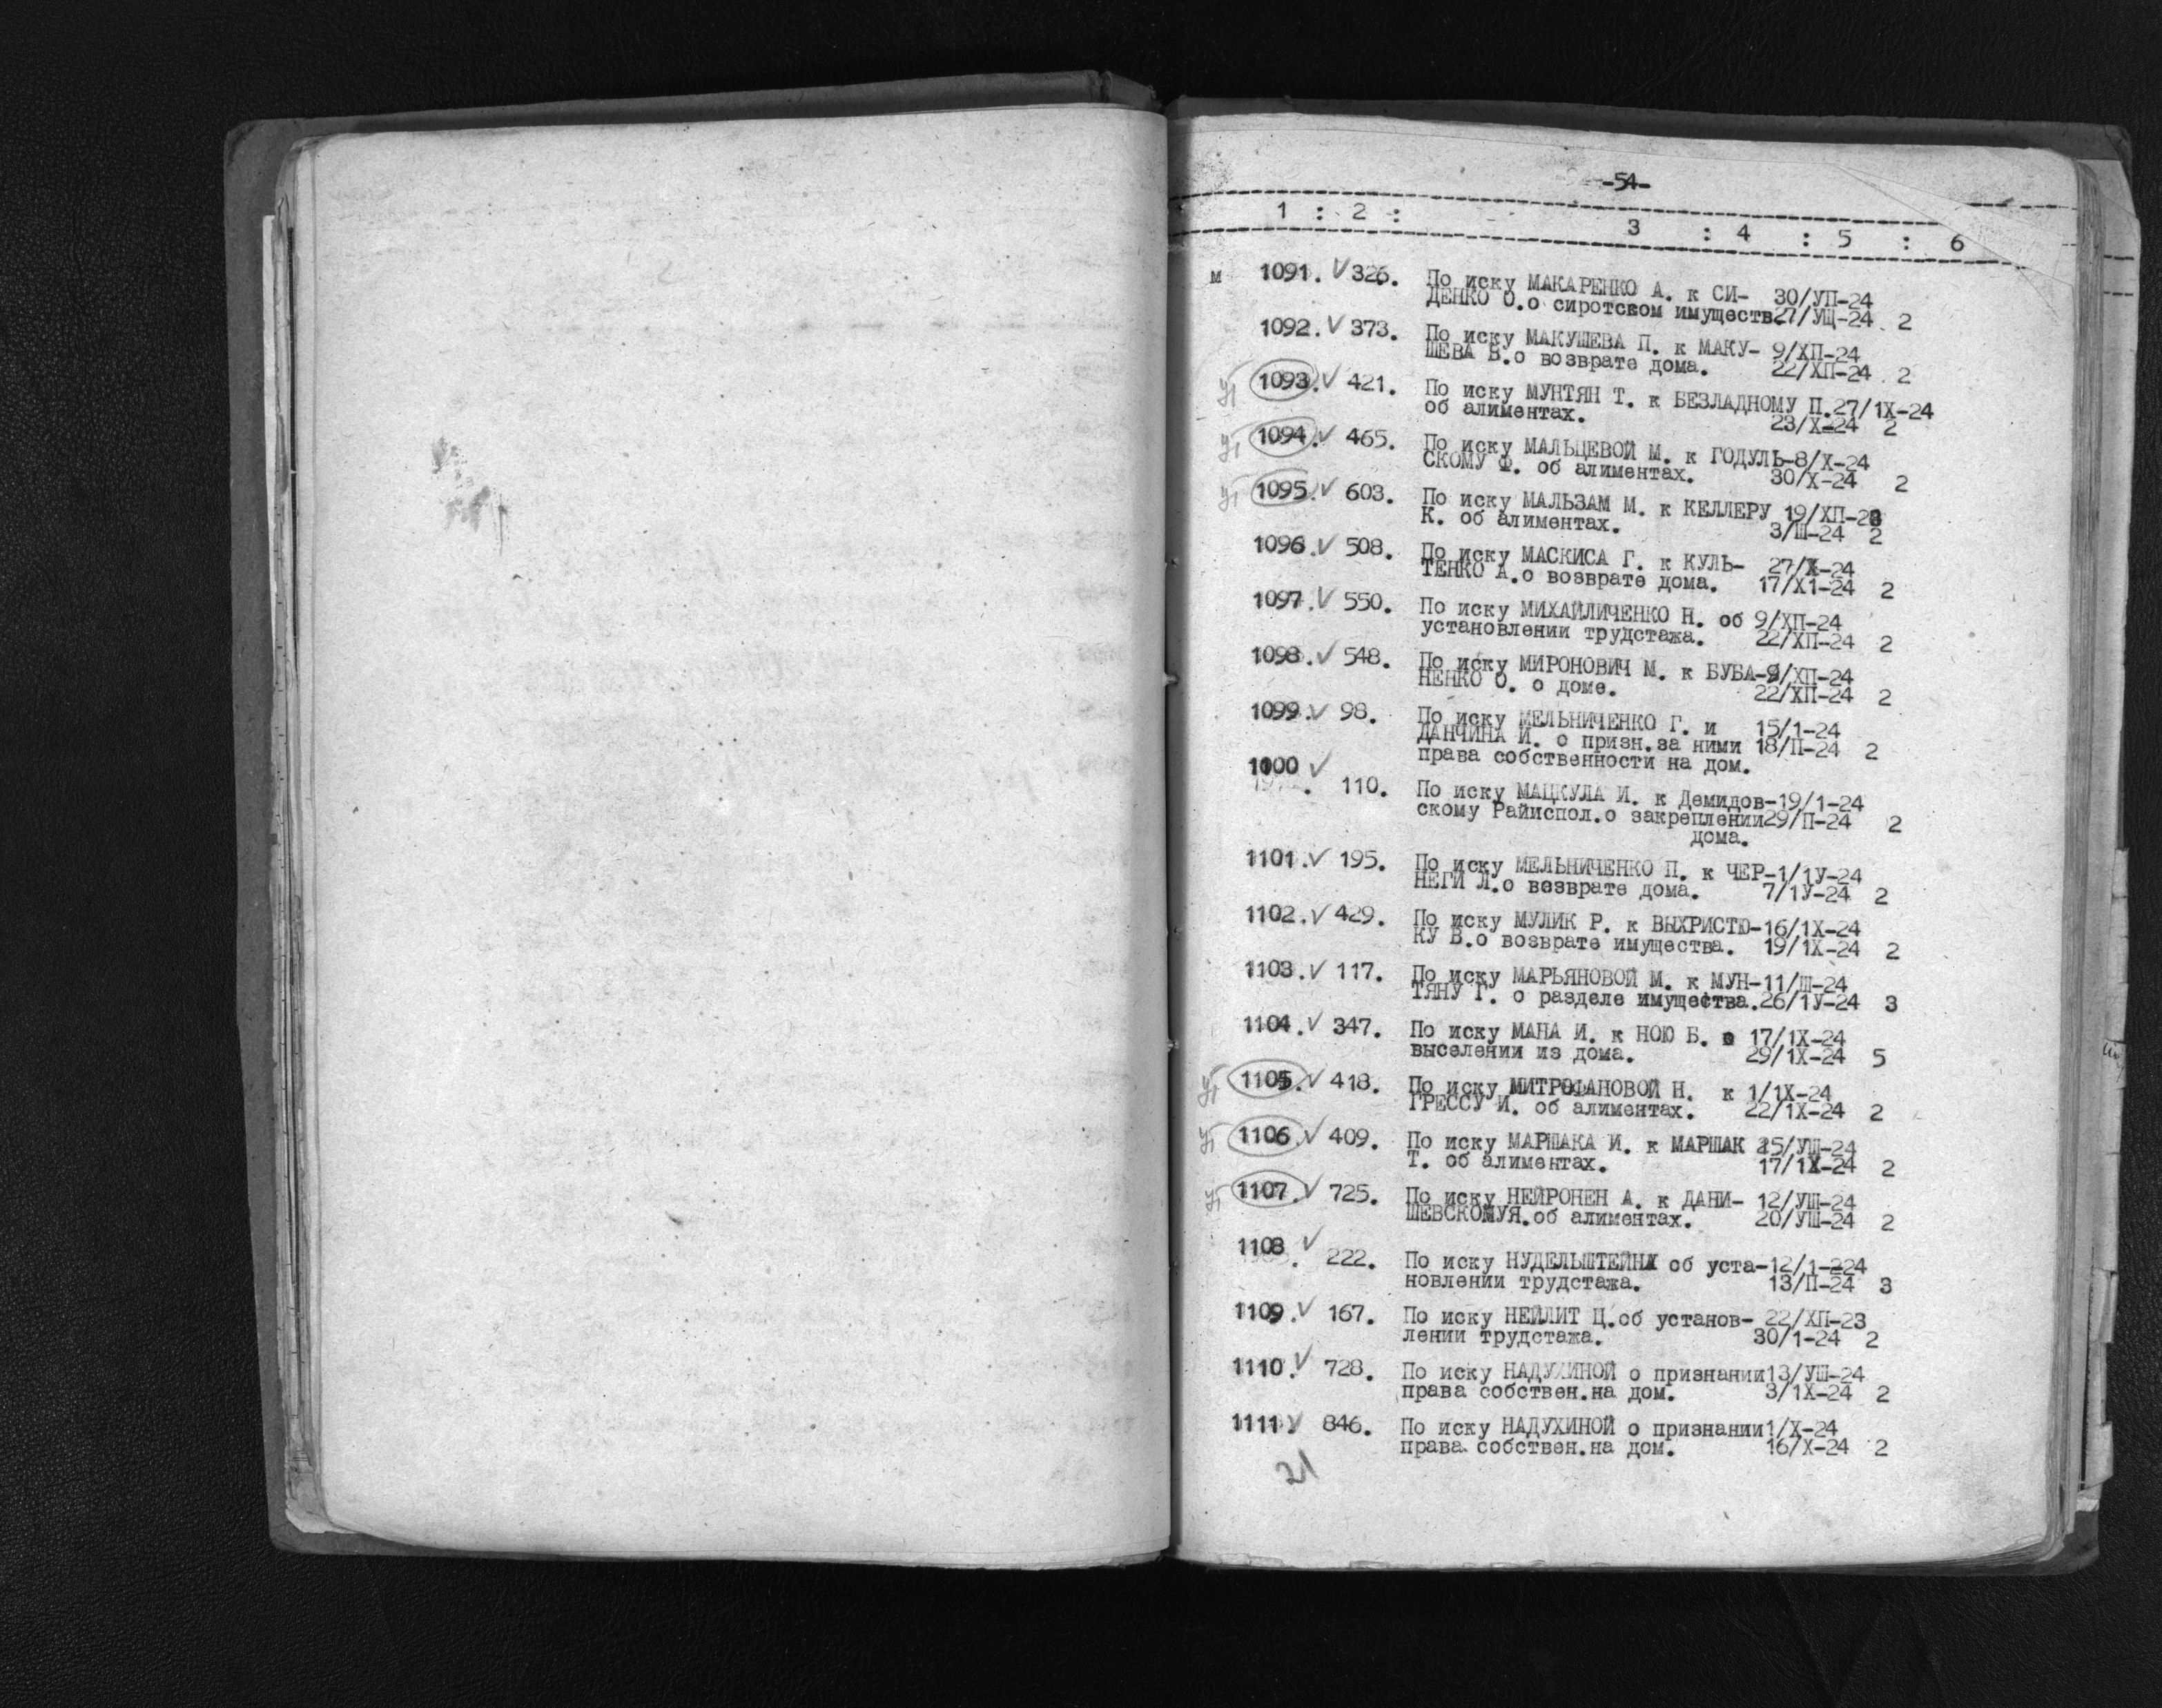 -54-
1 : 2 : 3 : 4 : 5 : 6
м 1091. V 326. По иску МАКАРЕНКО А. к СИ- 30/УП-24
ДЕНКО О.о сиротском имуществ27/УЩ-24 2
1092. V 373. По иску МАКУШЕВА П. к МАКУ- 9/ХП-24
ШЕВА В.о возврате дома. 22/ХП-24 2
1093. V 421. По иску МУНТЯН Т. к БЕЗЛАДНОМУ П.27/1Х-24
об алиментах. 23/Х-24 2
1094. V 465. По иску МАЛЬЦЕВОЙ М. к ГОДУЛЬ-8/Х-24
СКОМУ Ф. об алиментах. 30/Х-24 2
1095. V 603. По иску МАЛЬЗАМ М. к КЕЛЛЕРУ 19/ХП-23
К. об алиментах. 3/Ш-24 2
1096. V 508. По иску МАСКИСА Г. к КУЛЬ- 27/Х-24
ТЕНКО А.о возврате дома. 17/Х1-24 2
1097. V 550. По иску МИХАЙЛИЧЕНКО Н. об 9/ХП-24
установлении трудстажа. 22/ХП-24 2
1098. V 548. По иску МИРОНОВИЧ М. к БУБА-9/ХП-24
НЕНКО О. о доме. 22/ХП-24 2
1099. V 98. По иску МЕЛЬНИЧЕНКО Г. и 15/1-24
ДАНЧИНА И. о призн.за ними 18/П-24 2
права собственности на дом.
1100 V
. 110. По иску МАЦКУЛА И. к Демидов-19/1-24
скому Райиспол.о закреплении29/П-24 2
дома.
1101. V 195. По иску МЕЛЬНИЧЕНКО П. к ЧЕР-1/1У-24
НЕГИ Л.о возврате дома. 7/1У-24 2
1102. V 429. По иску МУЛИК Р. к ВЫХРИСТЮ-16/1Х-24
КУ В.о возврате имущества. 19/1Х-24 2
1103. V 117. По иску МАРЬЯНОВОЙ М. к МУН-11/Ш-24
ТЯНУ Г. о разделе имущества.26/1У-24 3
1104. V 347. По иску МАНА И. к НОЮ Б. о 17/1Х-24
выселении из дома. 29/1Х-24 5
1105. V 418. По иску МИТРОФАНОВОЙ Н. к 1/1Х-24
ГРЕССУ И. об алиментах. 22/1Х-24 2
1106. V 409. По иску МАРШАКА И. к МАРШАК 25/УШ-24
Т. об алиментах. 17/1Х-24 2
1107. V 725. По иску НЕЙРОНЕН А. к ДАНИ- 12/УШ-24
ШЕВСКОМУЯ.об алиментах. 20/УШ-24 2
1108 V
. 222. По иску НУДЕЛЬШТЕЙНА об уста-12/1-224
новлении трудстажа. 13/П-24 3
1109. V 167. По иску НЕЙЛИТ Ц.об установ- 22/ХП-23
лении трудстажа. 30/1-24 2
1110. V 728. По иску НАДУХИНОЙ о признании13/УШ-24
права собствен.на дом. 3/1Х-24 2
1111. V 846. По иску НАДУХИНОЙ о признании1/Х-24
права собствен.на дом. 16/Х-24 2
21